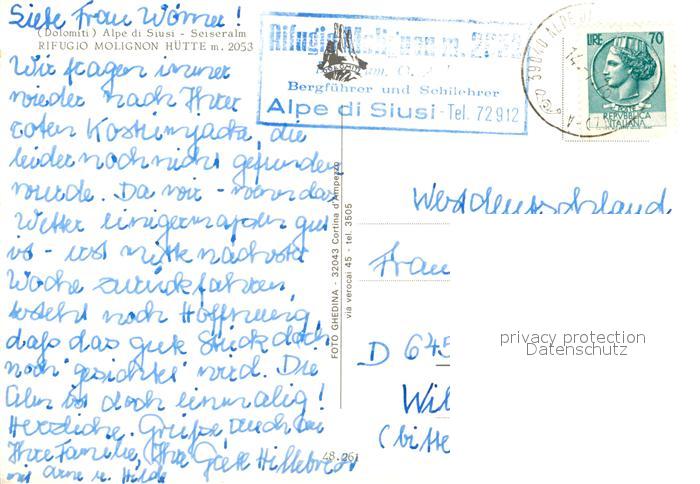 Liebe Frau Wörner!
(Dolomiti) Alpe di Siusi - Seiseralm
RIFUGIO MOLIGNON HÜTTE m. 2053
Wir fragen immer
wieder nach Ihrer
roten Kostümjacke, die
leider noch nicht gefunden
wurde. Da wir - wenn das
Wetter einigermaßen gut
is - erst mitte nächster
Woche zurückfahren
besteht noch Hoffnung,
daß das gute Stück doch
noch "gesichtet" wird. Die
Alm ist doch einmalig!
Herzliche Grüße auch an
Ihre Familie, Ihre
mit Arne u. Hilde
Rifugio Molignon m.
Bergführer und Schilehrer
Alpe di Siusi - Tel. 72912
39040 ALPE DI
LIRE 70
POSTE
REPVBBLICA
ITALIANA
FOTO GHEDINA - 32043 Cortina d'Ampezzo
via verocai 45 - tel. 3505
48.261
Westdeutschland
Frau
D 645
Wil
(bitte
privacy protection
Datenschutz